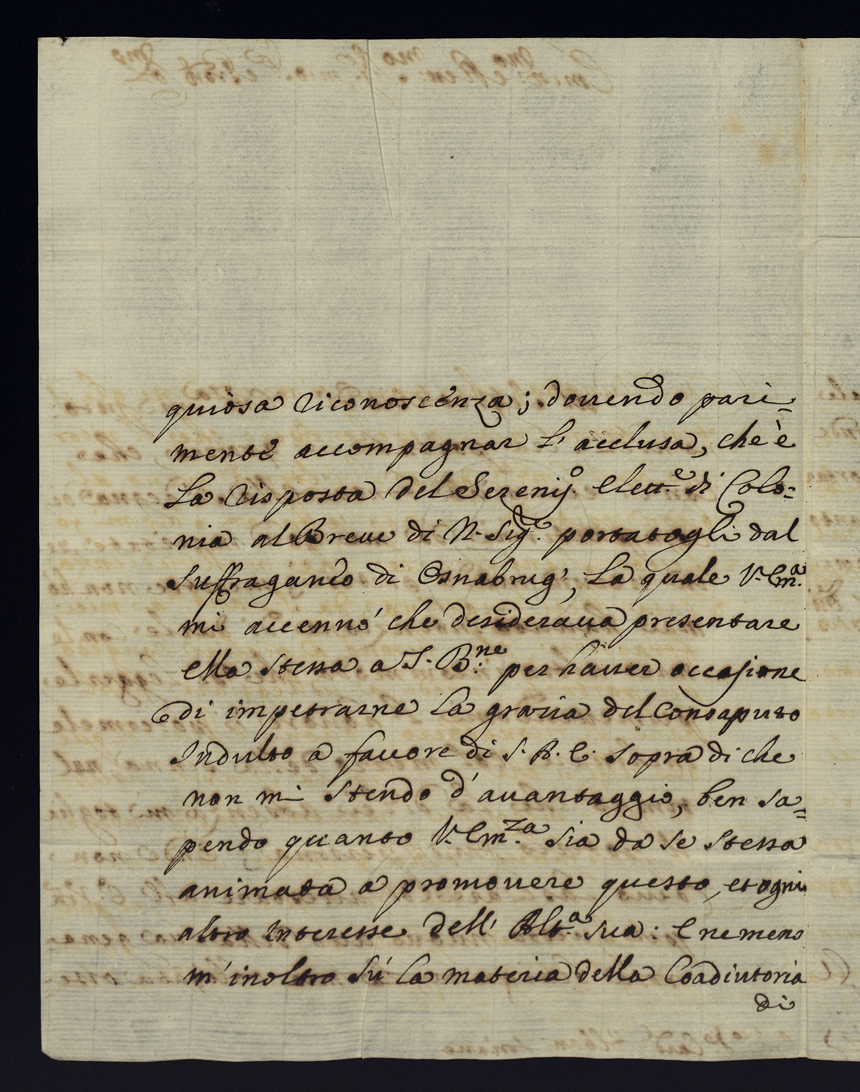 quiosa riconoscenza; dovendo pari=
mente accompagnar l'acclusa, che è
la risposta del Sereniss.º Elett.e di Colo=
nia al Breve di N. Sig.re portatogli dal
Suffraganeo di Osnabrug', la quale V. Em.a
mi accennò che desiderava presentare
ella stessa a S. B.ne per haver occasione
di impetrarne la grazia del consaputo
Indulto a favore di S. A. E. sopra di che
non mi stendo d'avantaggio, ben sa=
pendo quanto V. Em.za sia da se stessa
animata a promovere questo, et ogni
altro interesse dell' Alt.a sua: E ne meno
m'inoltro sù la materia della Coadiutoria
di